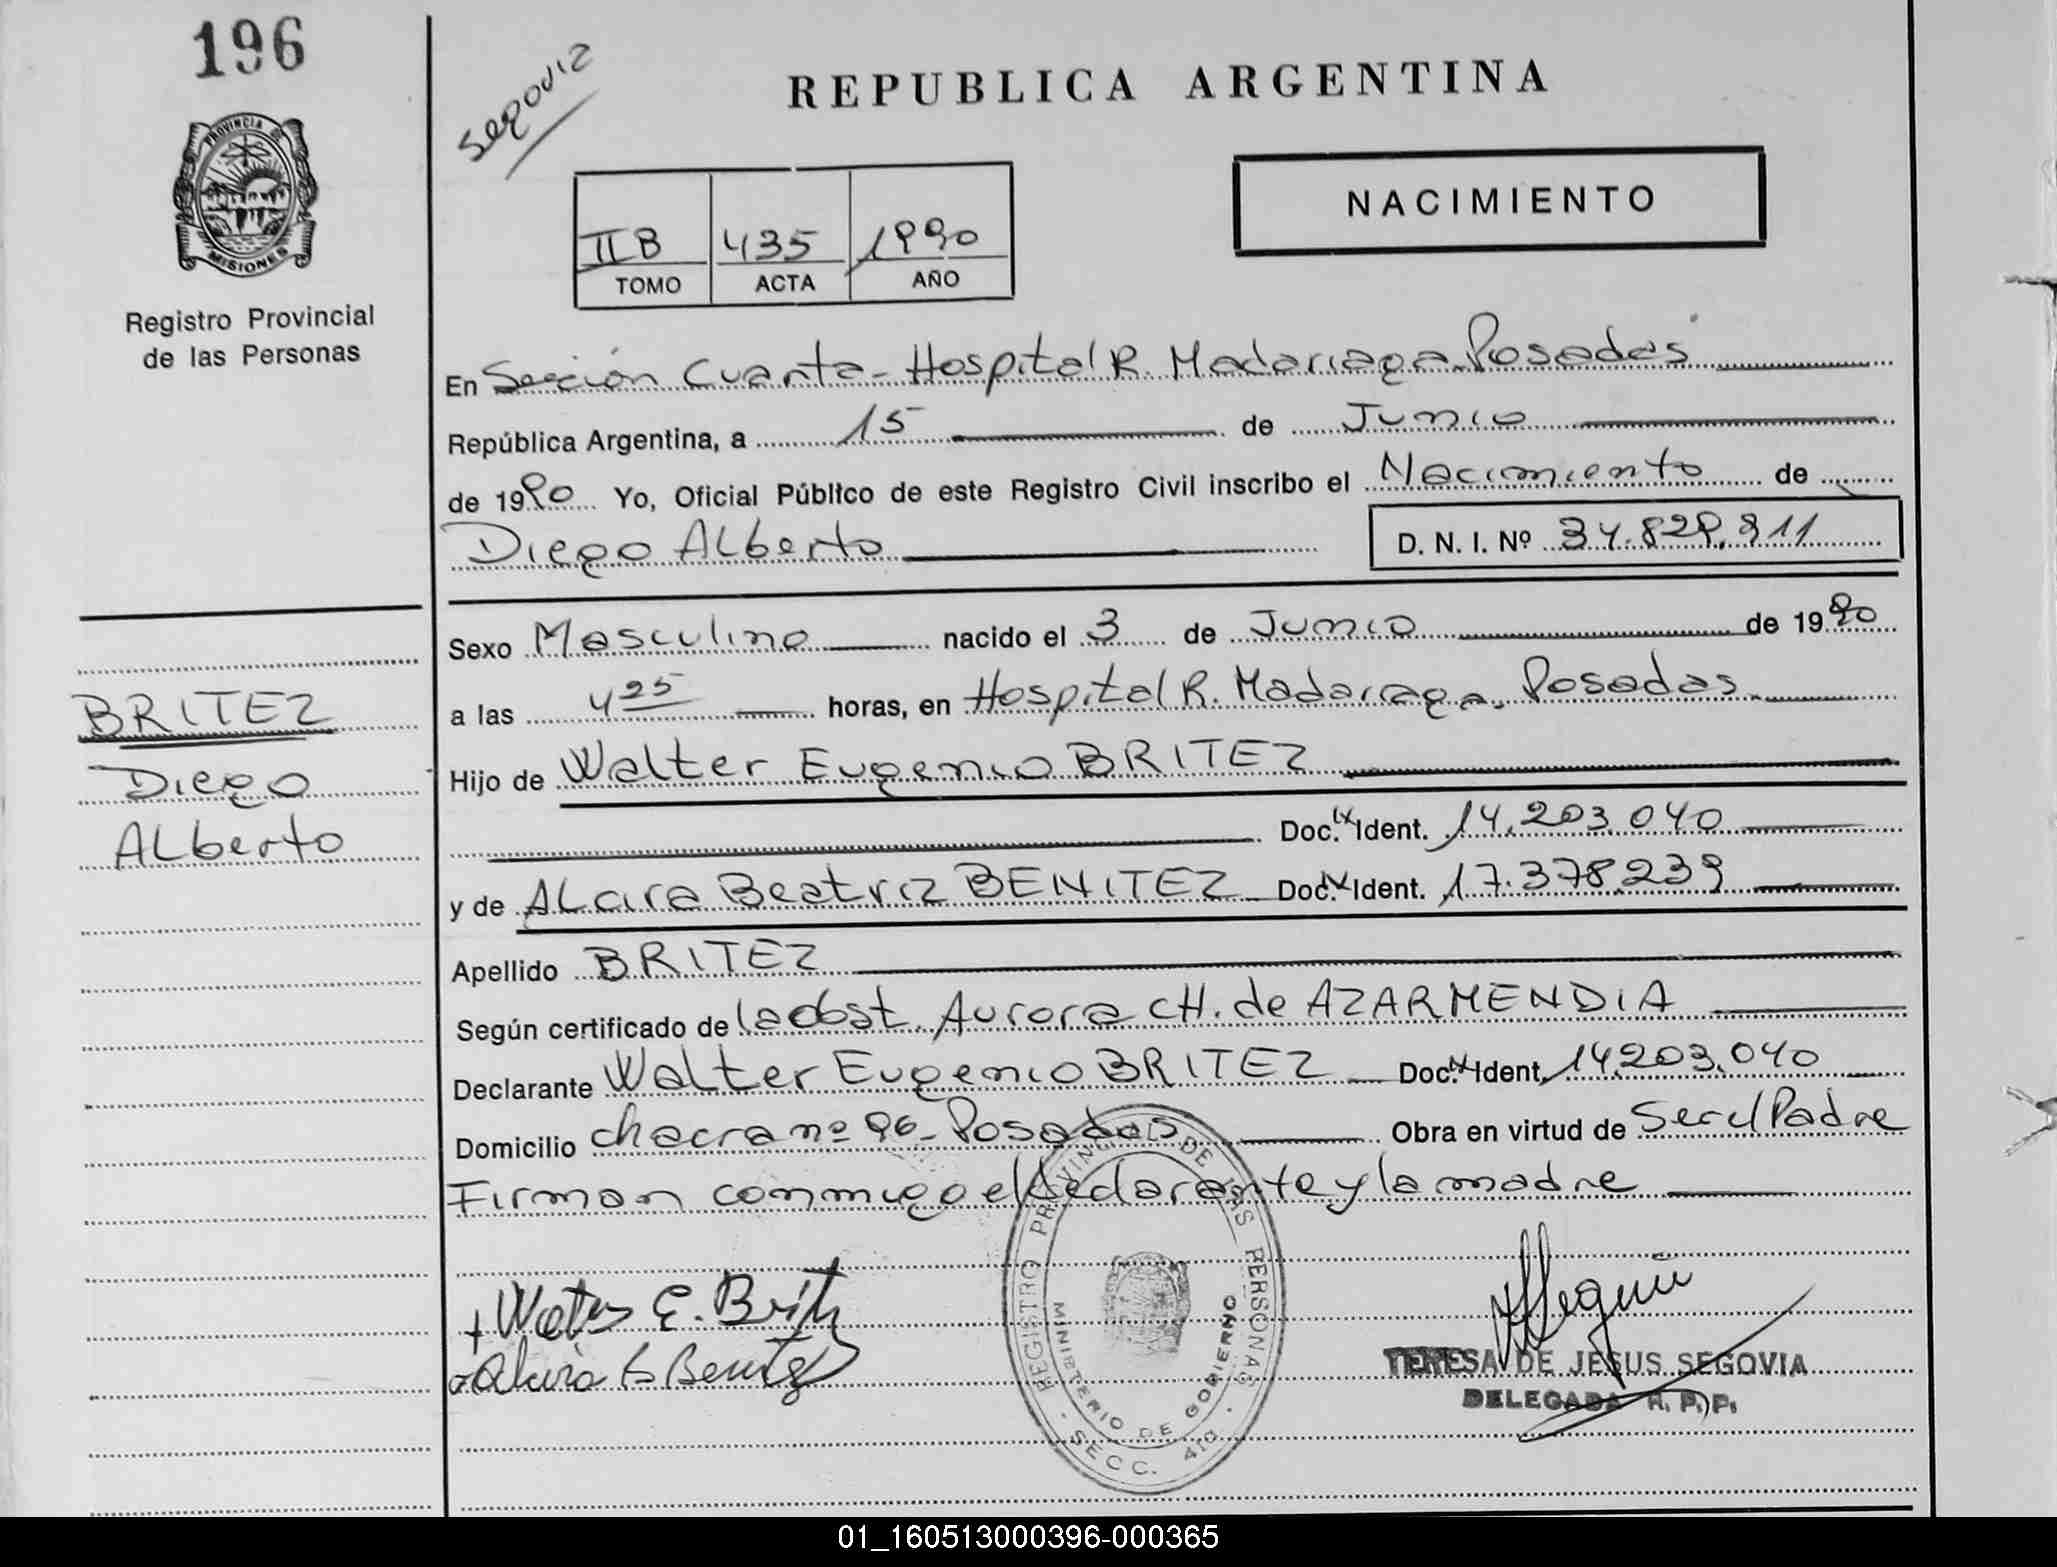 196
PROVINCIA DE
MISIONES
Registro Provincial
de las Personas
BRITEZ
Diego
ALberto
REPUBLICA ARGENTINA
NACIMIENTO
II B 435 1990
TOMO ACTA AÑO
En Sección Cuarta - Hospital R. Madariaga. Posadas
República Argentina, a 15 de Junio
de 1990 Yo, Oficial Público de este Registro Civil inscribo el Nacimiento de
Diego ALberto D. N. I. Nº
Sexo Masculino nacido el 3 de Junio de 1990
a las 4 25 horas, en Hospital R. Madariaga. Posadas
Hijo de Walter Eugenio BRITEZ
Doc. Ident. 14.203.040
y de ALcira Beatriz BENITEZ Doc. Ident. 17.378.239
Apellido BRITEZ
Según certificado de la obst. Aurora CH. de AZARMENDIA
Declarante Walter Eugenio BRITEZ Doc. Ident. 14.203.040
Domicilio chacra nº 96 - Posadas Obra en virtud de Ser el Padre
Firman conmigo el declarante y la madre
Walter E. Britez
Alcira B Benitez
REGISTRO PROVINCIAL DE LAS PERSONAS
MINISTERIO DE GOBIERNO
SECC. 4ta
TERESA DE JESUS SEGOVIA
DELEGADA R. P. P.
01_160513000396-000365